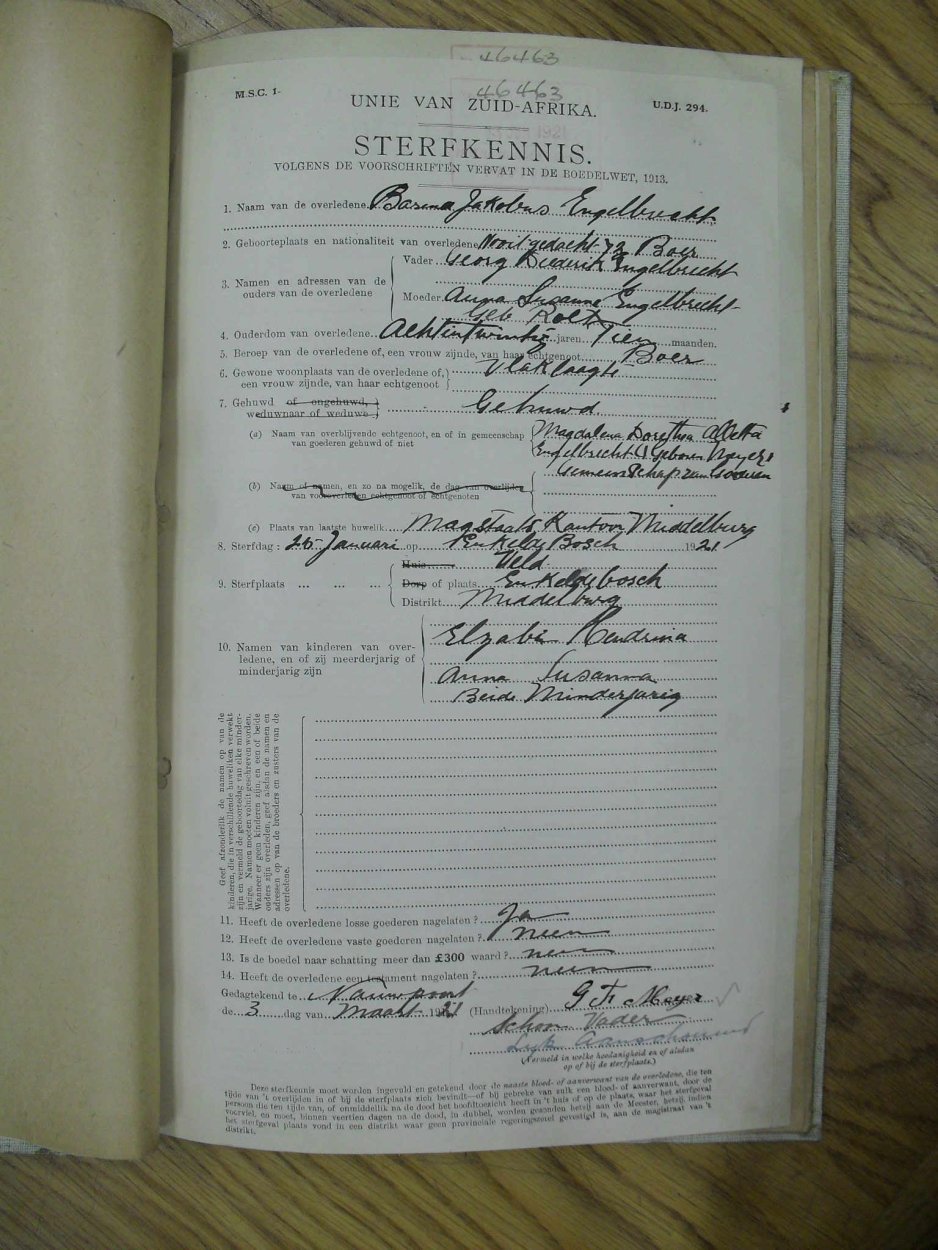 46463
46463
M.S.C. 1-
U.D.J. 294.
UNIE VAN ZUID-AFRIKA.
1921
STERFKENNIS.
VOLGENS DE VOORSCHRIFTEN VERVAT IN DE BOEDELWET, 1913.
1. Naam van de overledene Jakobus Engelbrecht
2. Geboorteplaats en nationaliteit van overledene Nooitgedacht 72 Boer
3. Namen en adressen van de ouders van de overledene
Vader Georg Diederik Engelbrecht
Moeder Anna Susanna Engelbrecht
Geb
4. Ouderdom van overledene Achtentwintig jaren Tien maanden.
5. Beroep van de overledene of, een vrouw zijnde, van haar echtgenoot Boer
6. Gewone woonplaats van de overledene of, een vrouw zijnde, van haar echtgenoot Vlaklaagte
7. Gehuwd of ongehuwd, weduwnaar of weduwe Gehuwd
(a) Naam van overblijvende echtgenoot, en of in gemeenschap van goederen gehuwd of niet
Magdalena Dorethea
Engelbrecht Geboren Meyer
Gemeenschap van Goederen
(b) Naam of namen, en zo na mogelik, de dag van overlijden van vooroverleden echtgenoot of echtgenoten
(c) Plaats van laatste huwelik Kantoor Middelburg
8. Sterfdag: 26 Januari op Enkelde Bosch 1921
9. Sterfplaats ... ... ...
Huis Veld
Dorp of plaats Enkeldebosch
Distrikt Middelburg
10. Namen van kinderen van overledene, en of zij meerderjarig of minderjarig zijn
Hendrina
Anna Susanna
Beide Minderjarig
Geef afzonderlik de namen op van de kinderen, die in verschillende huweliken verwekt zijn en vermeld de geboortedag van elke minderjarige. Namen moeten voluit geschreven worden. Wanneer er geen kinderen zijn en een of beide ouders zijn overleden, geef alsdan de namen en adressen op van de broeders en zusters van de overledene.
11. Heeft de overledene losse goederen nagelaten? Ja
12. Heeft de overledene vaste goederen nagelaten? neen
13. Is de boedel naar schatting meer dan £300 waard? neen
14. Heeft de overledene een testament nagelaten? neen
Gedagtekend te Nauwpoort
de 3 dag van Maart 1921
(Handtekening) G F Meyer
Schoon Vader
Lijk
(Vermeld in welke hoedanigheid en of alsdan op of bij de sterfplaats.)
Deze sterfkennis moet worden ingevuld en getekend door de naaste bloed- of aanverwant van de overledene, die ten
tijde van 't overlijden in of bij de sterfplaats zich bevindt—of bij gebreke van zulk een bloed- of aanverwant, door de
persoon die ten tijde van, of onmiddellik na de dood het hoofdtoezicht heeft in 't huis of op de plaats, waar het sterfgeval
voorviel, en moet, binnen veertien dagen na de dood, in dubbel, worden gezonden hetzij aan de Meester, hetzij, indien
het sterfgeval plaats vond in een distrikt waar geen provinciale regeringszetel gevestigd is, aan de magistraat van 't
distrikt.